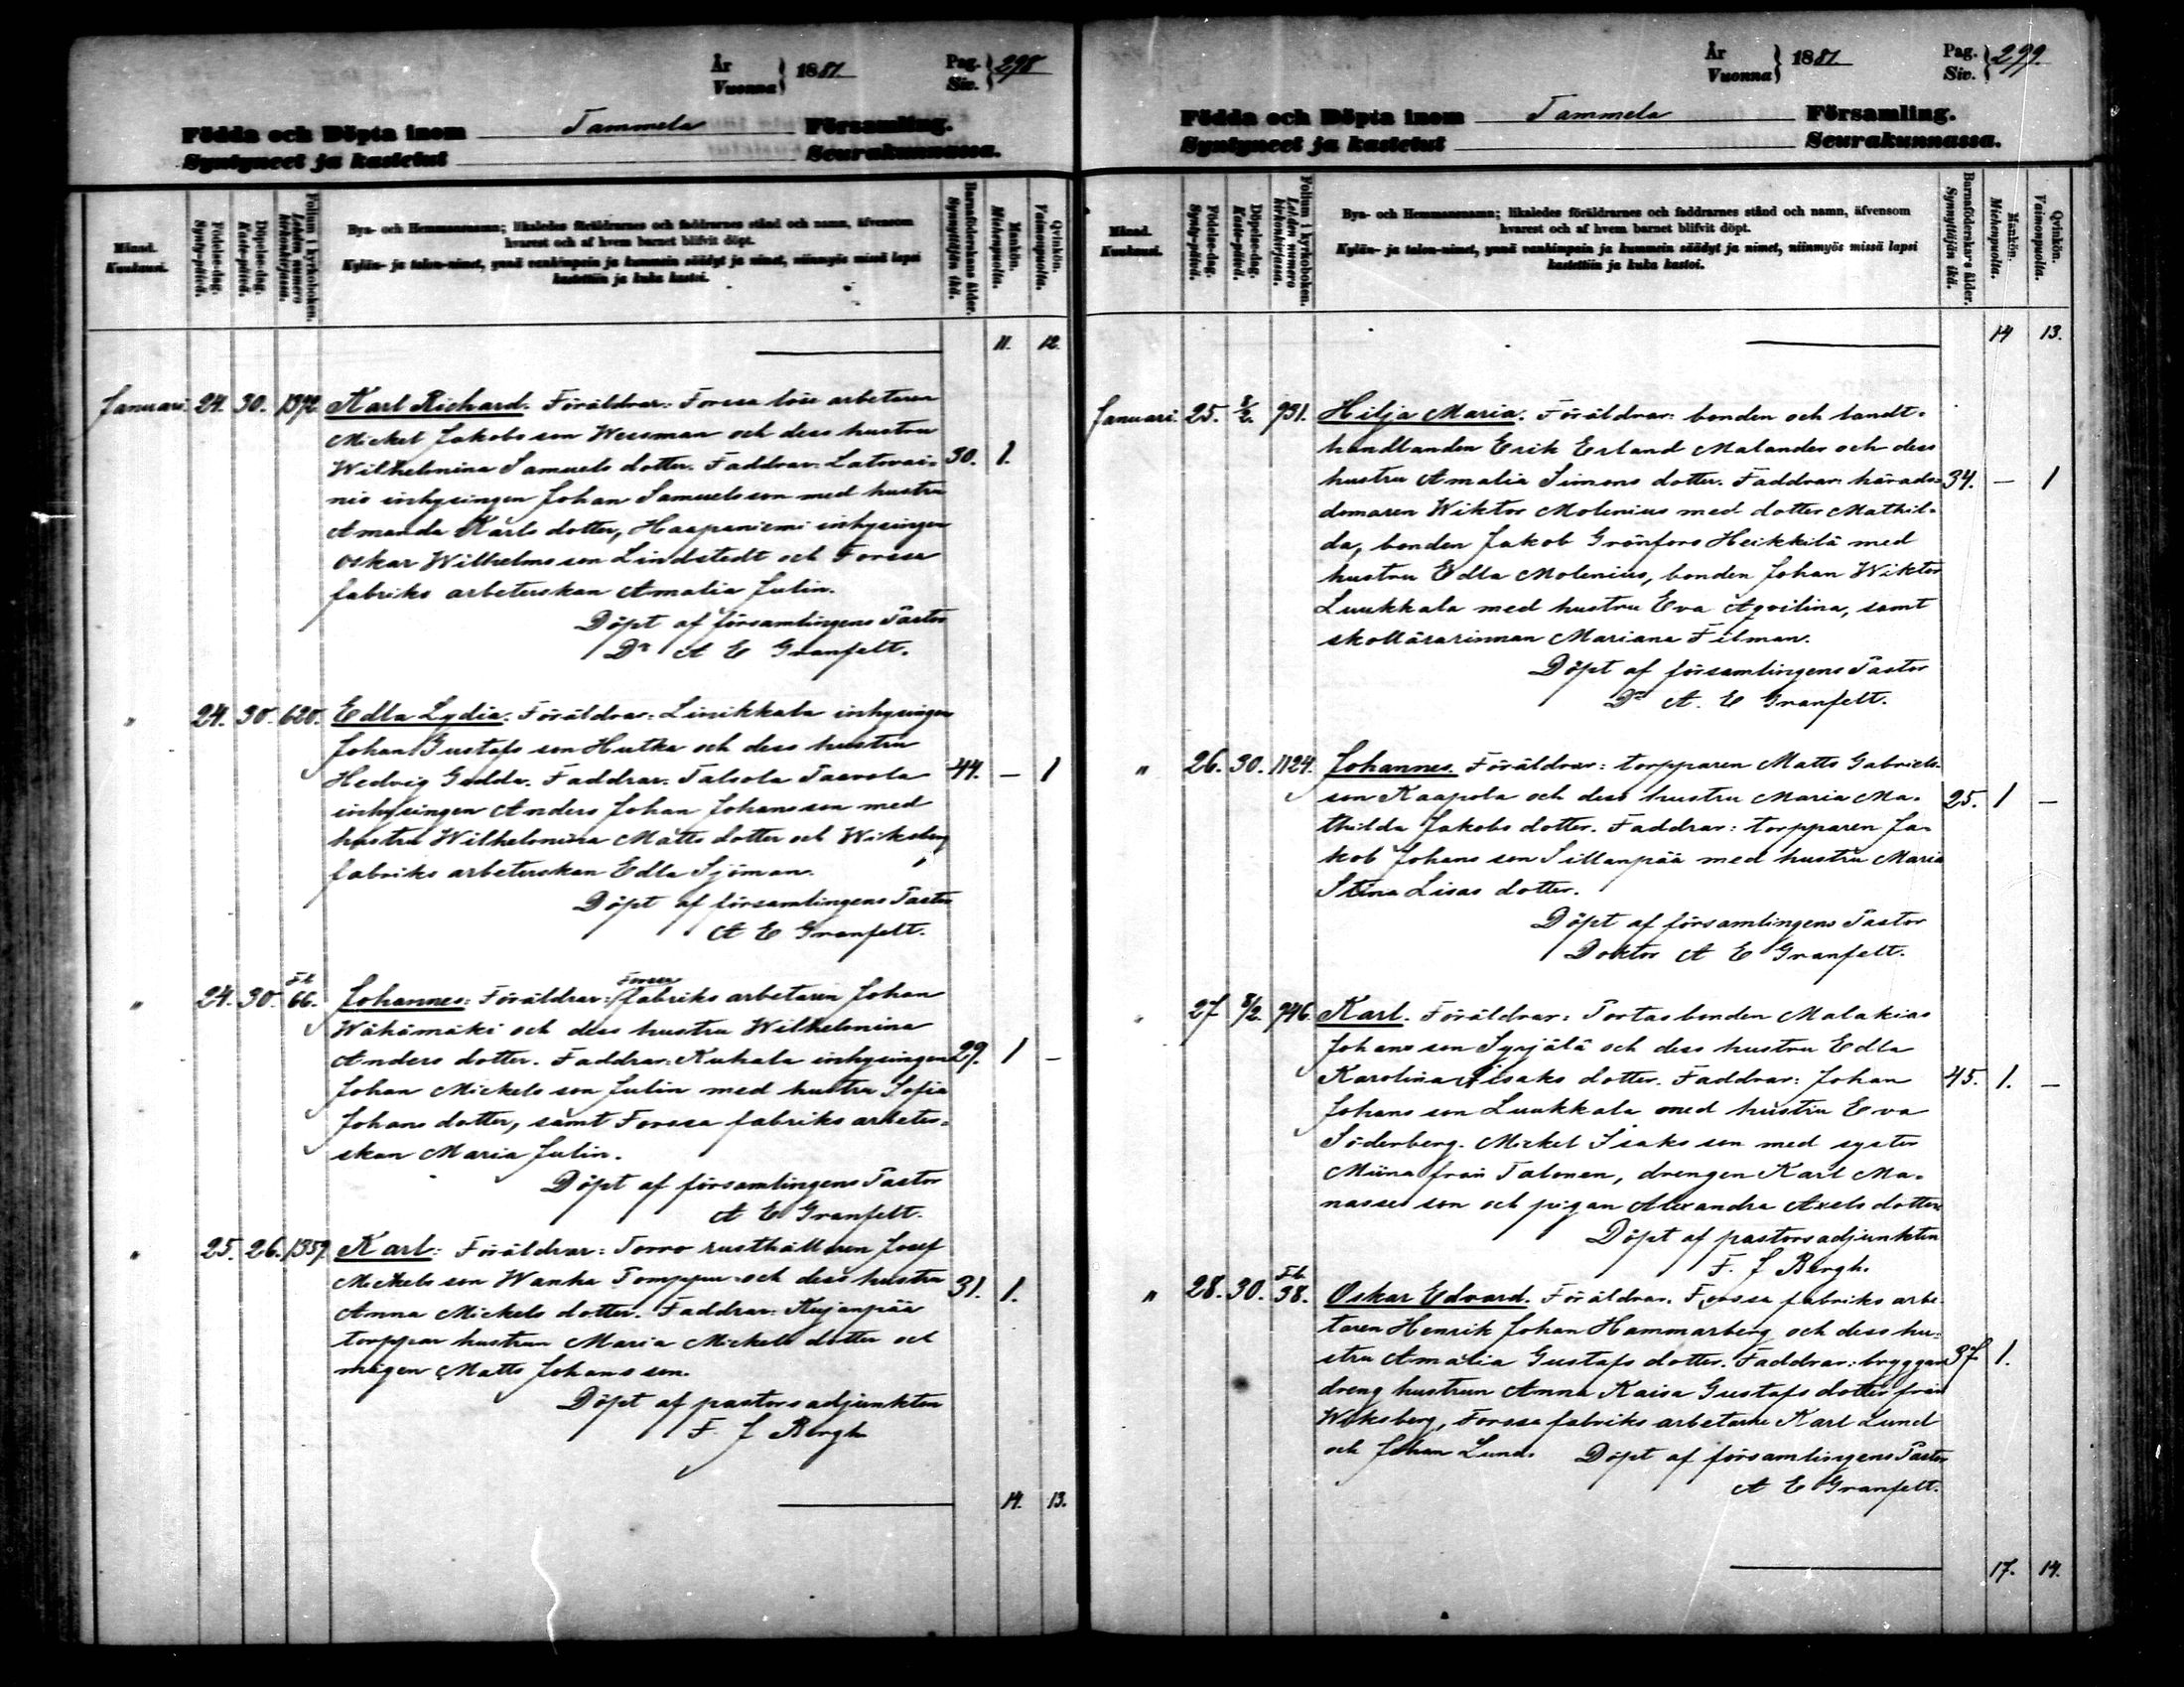 År
Vuonna } 1881
Pag.
Siv. } 298
Födda och Döpta inom Tammela Församling.
Syntyneet ja kastetut Seurakunnassa.
Månad.
Kuukausi.
Födelse-dag.
Synty-päivä.
Döpelse-dag.
Kaste-päivä.
Folium i kyrkoboken.
Lehden nummero kirkonkirjassa.
Bya- och Hemmansnamn; likaledes föräldrarnes och faddrarnes stånd och namn, äfvensom
hvarest och af hvem barnet blifvit döpt.
Kylän- ja talon-nimet, ynnä vanhimpain ja kummein säädyt ja nimet, niinmyös missä lapsi
kastettiin ja kuka kastoi.
Barnaföderskans ålder.
Synnyttäjän ikä.
Mankön.
Miehenpuolta.
Qvinkön.
Vaimonpuolta.
11. 12.
Januari. 24. 30. 1372. Karl Richard. Föräldrar: Forssa löse arbetaren
Mickel Jakobs son Wessman och dess hustru
Wilhelmina Samuels dotter. Faddrar: Latovai- 30. 1.
nio inhysingen Johan Samuelsson med hustru
Amanda Karls dotter, Haapaniemi inhysingen
Oskar Wilhelms son Lindstedt och Forssa
fabriks arbeterskan Amalia Julin.
Döpt af församlingens Pastor
Dr A E Granfelt.
" 24. 30. 620. Edla Lydia. Föräldrar: Linikkala inhysingen
Johan Gustafs son Hutka och dess hustru
Hedvig Gedda. Faddrar: Talsola Paavola 44. — 1
inhysingen Anders Johan Johansson med
hustru Wilhelmina Matts dotter och Wiksberg
fabriks arbeterskan Edla Sjöman.
Döpt af församlingens Pastor
A E Granfelt.
" 24. 30. Fb 66. Johannes: Föräldrar: Forssa fabriks arbetaren Johan
Wähämäki och dess hustru Wilhelmina
Anders dotter. Faddrar: Kuhala inhysingen 29. 1 —
Johan Mickels son Julin med hustru Sofia
Johans dotter, samt Forssa fabriks arbeter-
skan Maria Julin.
Döpt af församlingens Pastor
A E Granfelt.
" 25. 26. 1359. Karl: Föräldrar: Torro rusthållaren Josef
Mickels son Wanha Tomppu och dess hustru 31. 1.
Anna Mickels dotter. Faddrar: Kujanpää
torppar hustrun Maria Mickels dotter och
mågen Matts Johansson.
Döpt af pastors adjunkten
F. J Bergh
14. 13.
År
Vuonna } 1881.
Pag.
Siv. } 299.
Födda och Döpta inom Tammela Församling.
Syntyneet ja kastetut Seurakunnassa.
Månad.
Kuukausi.
Födelse-dag.
Synty-päivä.
Döpelse-dag.
Kaste-päivä.
Folium i kyrkoboken.
Lehden nummero kirkonkirjassa.
Bya- och Hemmansnamn; likaledes föräldrarnes och faddrarnes stånd och namn, äfvensom
hvarest och af hvem barnet blifvit döpt.
Kylän- ja talon-nimet, ynnä vanhimpain ja kummein säädyt ja nimet, niinmyös missä lapsi
kastettiin ja kuka kastoi.
Barnaföderskans ålder.
Synnyttäjän ikä.
Mankön.
Miehenpuolta.
Qvinkön.
Vaimonpuolta.
14 13.
Januari. 25. 931. Hilja Maria. Föräldrar: bonden och landt-
handlanden Erik Erland Malander och dess
hustru Amalia Simons dotter. Faddrar: härads- 34. — 1
domaren Wiktor Molenius med dotter Mathil-
da, bonden Jakob Grönfors Heikkilä med
hustru Edla Molenius, bonden Johan Wiktor
Luukkala med hustru Eva Aqvilina, samt
skollärarinnan Mariana Filman.
Döpt af församlingens Pastor
Dr A. E Granfelt.
" 26. 30. 1124. Johannes. Föräldrar: torpparen Matts Gabriels-
son Kaapola och dess hustru Maria Ma- 25. 1 —
thilda Jakobs dotter. Faddrar: torpparen Ja-
kob Johansson Sillanpää med hustru Maria
Stina Lisas dotter.
Döpt af församlingens Pastor
Doktor A E Granfelt.
" 27 8/2. 946. Karl. Föräldrar: Portas bonden Malakias
Johansson Syrjälä och dess hustru Edla
Karolina Isaks dotter. Faddrar: Johan 45. 1. —
Johans son Luukkala med hustru Eva
Söderberg. Mickel Isaks son med syster
Miina från Talonen, drengen Karl Ma-
nasses son och pigan Alexandra Axels dotter
Döpt af pastorsadjunkten
F. J Bergh.
" 28. 30. Fb. 38. Oskar Edvard. Föräldrar: Forssa fabriks arbe-
taren Henrik Johan Hammarberg och dess hu-
stru Amalia Gustafs dotter. Faddrar: bryggare 37 1.
dreng hustrun Anna Kaisa Gustafs dotter från
Wiksberg, Forssa fabriks arbetarne Karl Lund
och Johan Lund. Döpt af församlingens Pastor
A E Granfelt.
17. 14.